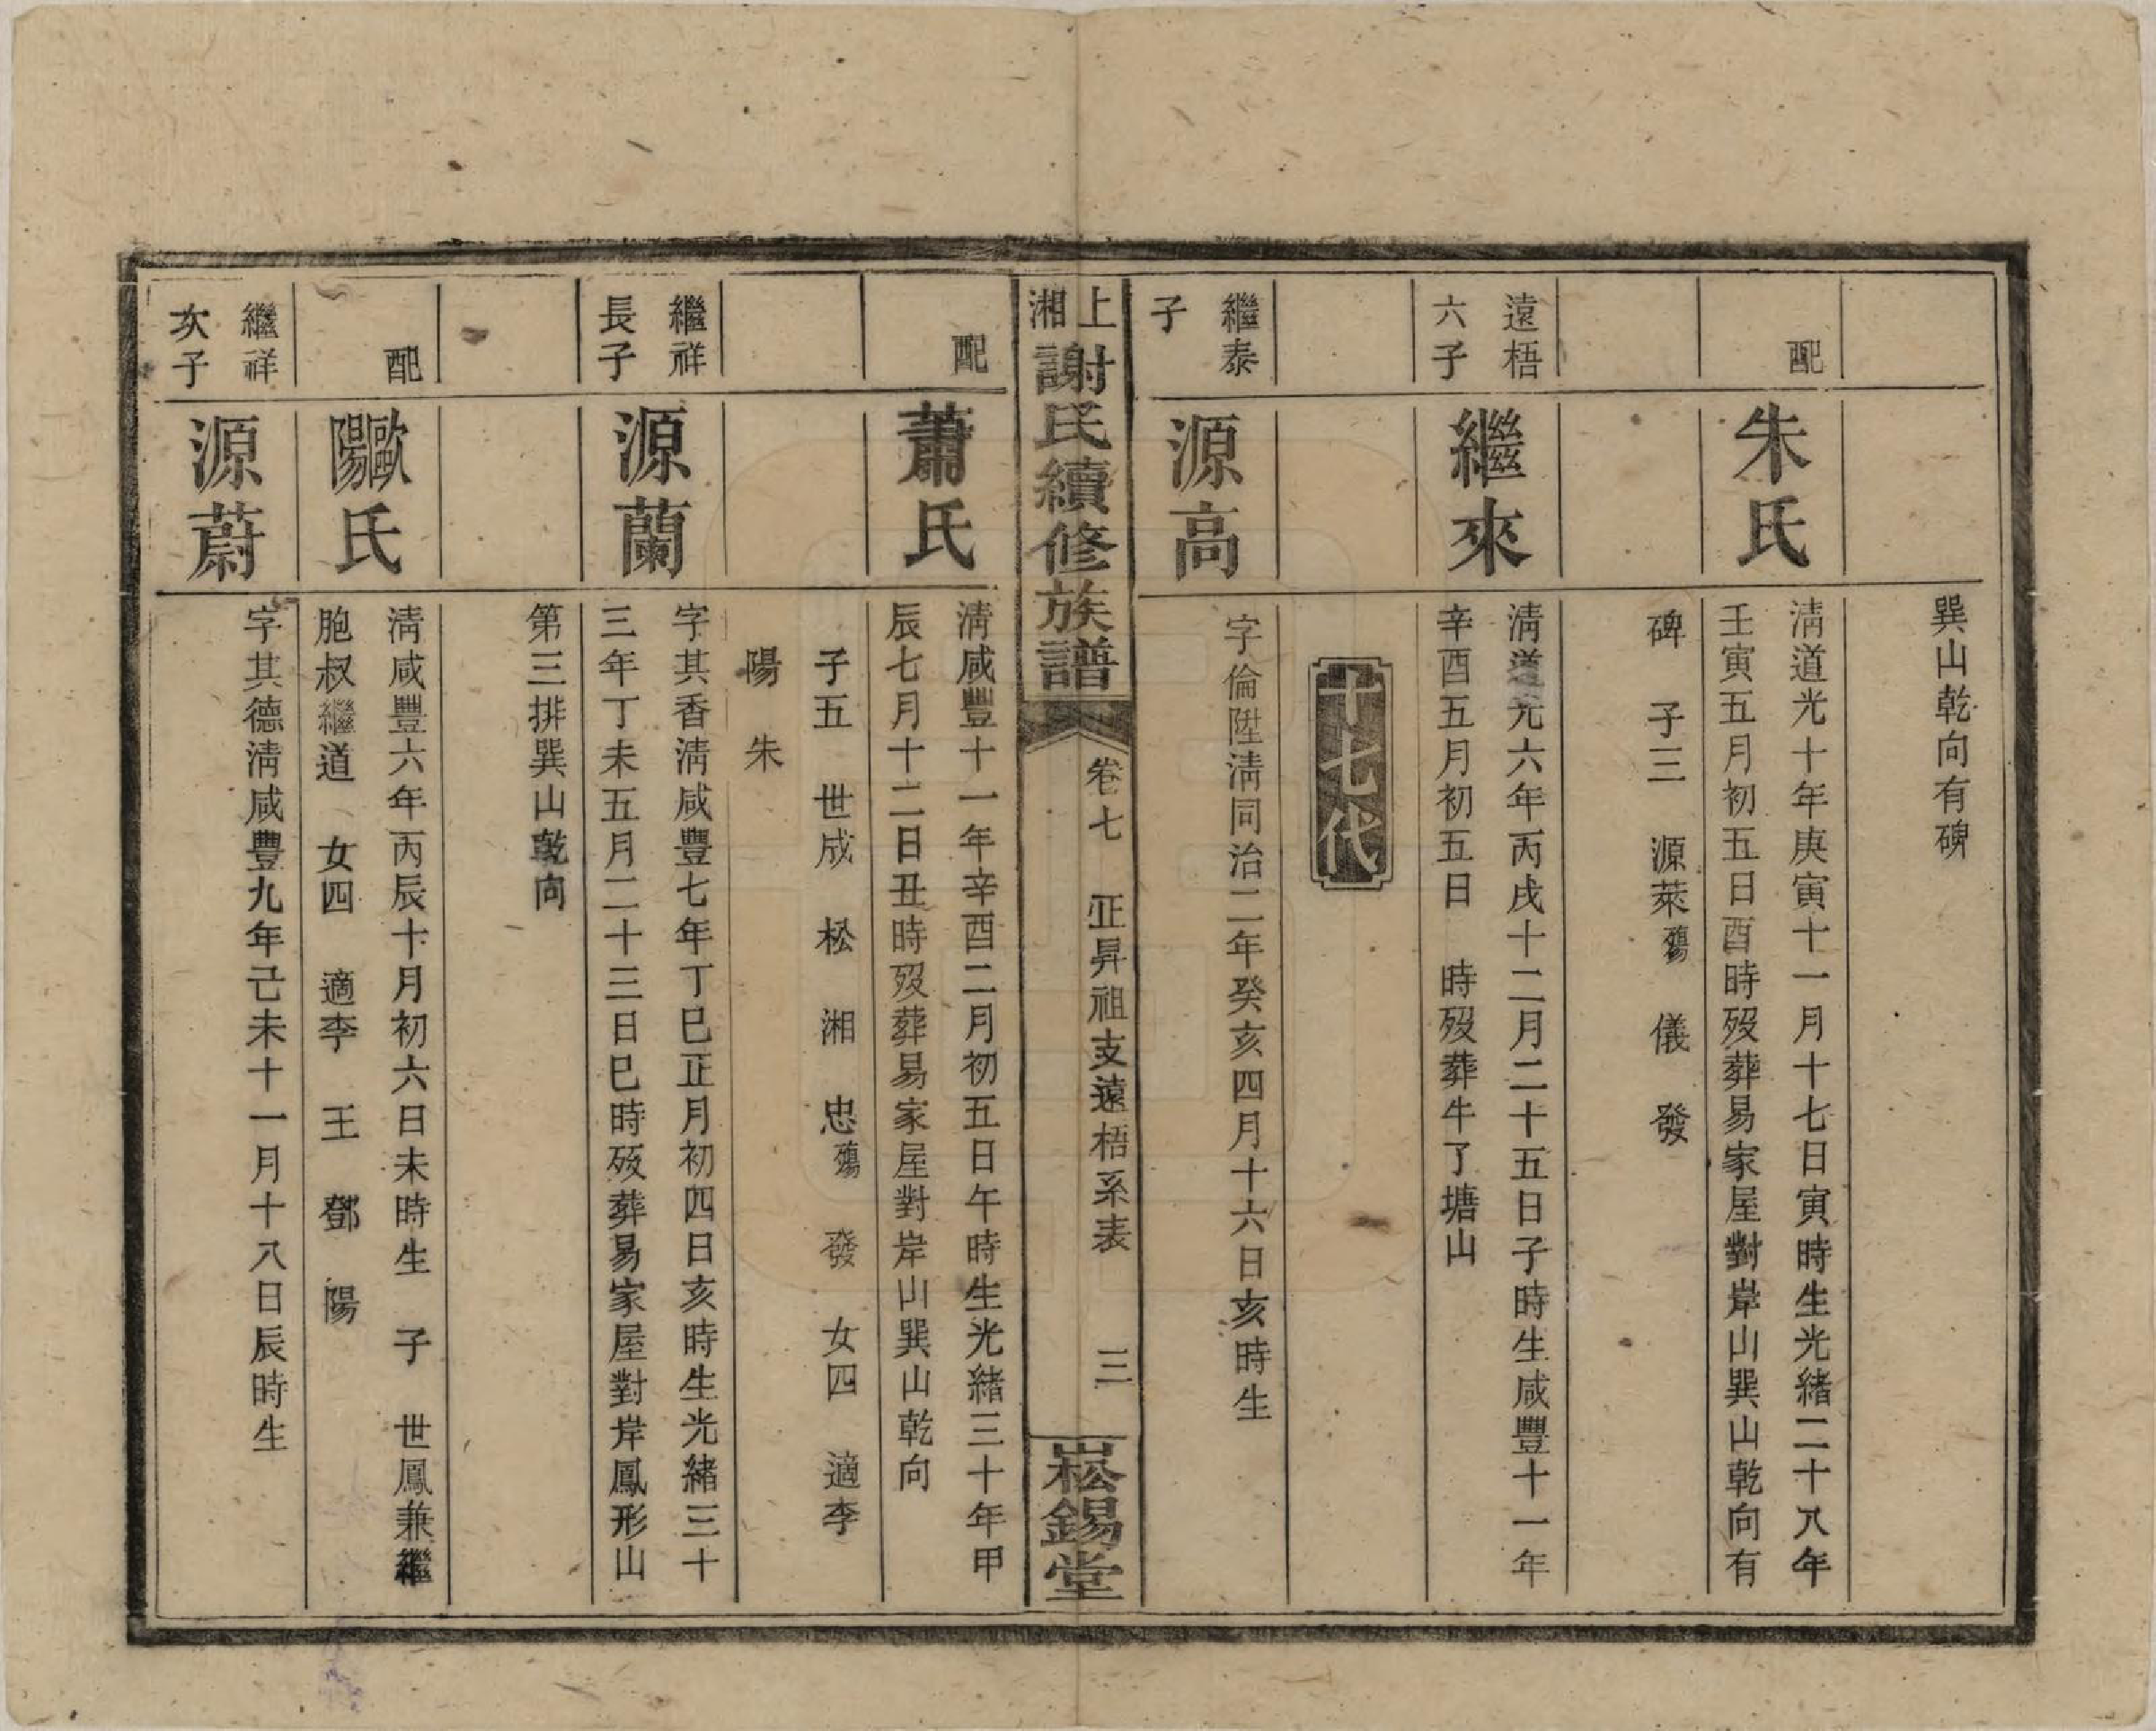 巽山乾向有碑
配
朱氏
淸道光十年庚寅十一月十七日寅時生光緒二十八年
壬寅五月初五日酉時歿葬易家屋對岸山巽山乾向有
碑 子三 源萊殤 儀 發
遠梧
六子
繼來
淸道光六年丙戌十二月二十五日子時生咸豐十一年
辛酉五月初五日 時歿葬牛了塘山
十七代
繼泰
子
源高
字倫陞淸同治二年癸亥四月十六日亥時生
上湘謝氏續修族譜
卷七 正昇祖支遠梧系表 三
崧錫堂
配
蕭氏
淸咸豐十一年辛酉二月初五日午時生光緒三十年甲
辰七月十二日丑時歿葬易家屋對岸山巽山乾向
子五 世成 松 湘 忠殤 發 女四 適李
陽 朱
繼祥
長子
源蘭
字其香淸咸豐七年丁巳正月初四日亥時生光緒三十
三年丁未五月二十三日巳時歿葬易家屋對岸鳳形山
第三排巽山乾向
配
歐陽氏
淸咸豐六年丙辰十月初六日未時生 子 世鳳兼繼
胞叔繼道 女四 適李 王 鄧 陽
繼祥
次子
源蔚
字其德淸咸豐九年己未十一月十八日辰時生